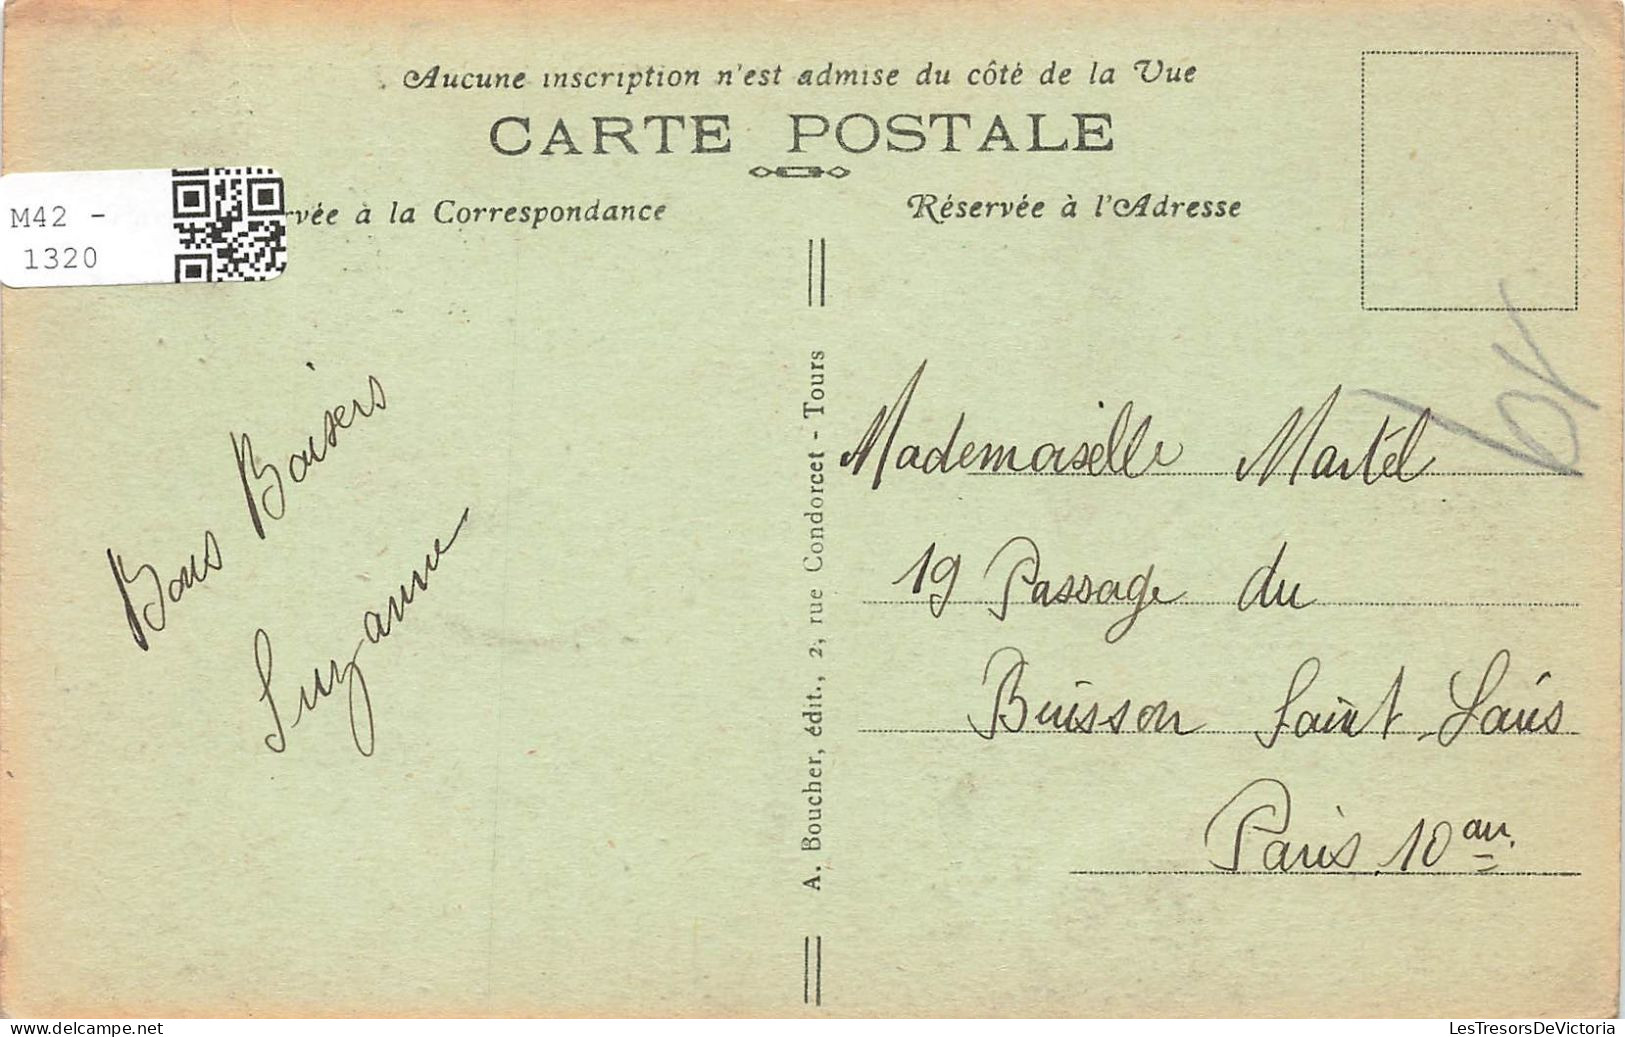 Aucune inscription n'est admise du côté de la Vue
CARTE POSTALE
M42 -
1320
rvée à la Correspondance
Réservée à l'Adresse
Bons Baisers
Suzanne
A. Boucher, édit., 2, rue Condorcet - Tours
Mademoiselle Martel
19 Passage du
Buisson Saint Louis
Paris 10 arr.
delcampe.net
LesTresorsDeVictoria